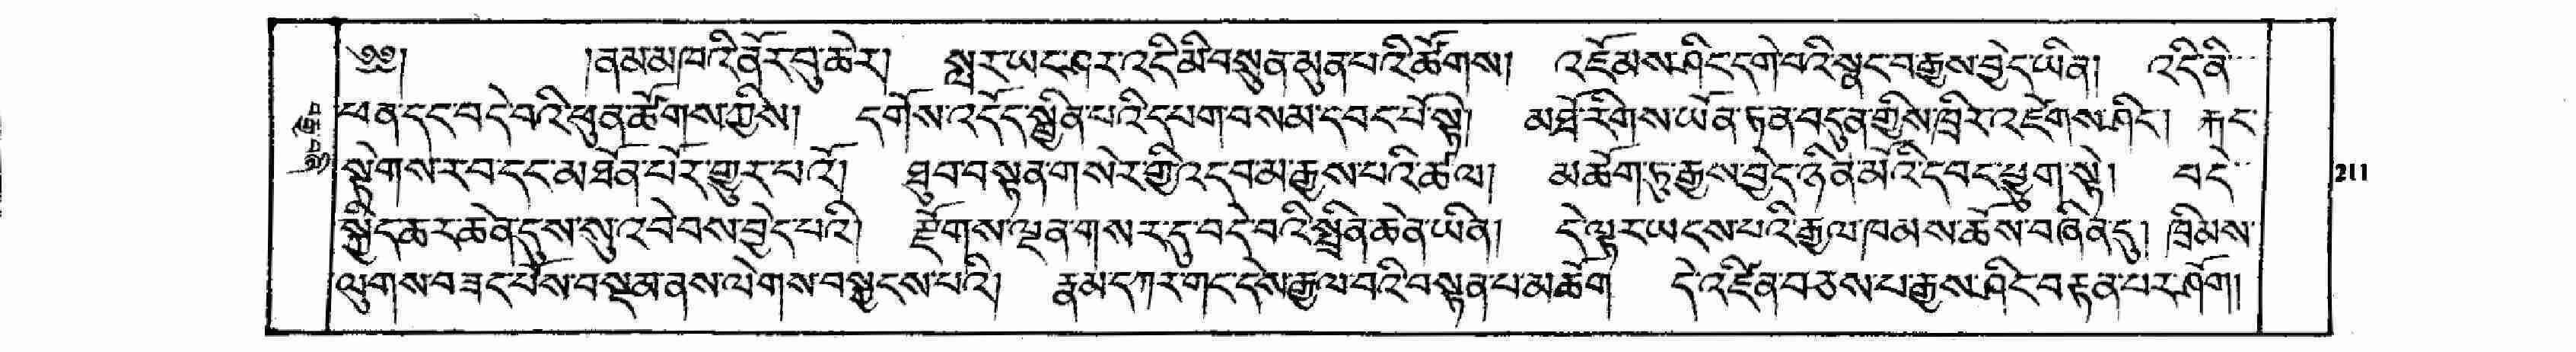 ༄༅། །ནམ་མཁའི་ནོར་བུ་ཆེར། སླར་ཡང་ཤར་འདི་མི་བསྲུན་མུན་པའི་ཚོགས། འཇོམས་ཤིང་དགེ་བའི་སྣང་བ་རྒྱས་བྱེད་ཡིན། འདི་ནི་
ཕན་དང་བདེ་བའི་ཕུན་ཚོགས་ཀྱིས། དགོས་འདོད་སྦྱིན་པའི་དཔག་བསམ་དབང་པོ་སྟེ། མཐོ་རིགས་ཡོན་ཏན་བདུན་གྱིས་ཁྲིར་འཛེགས་ཤིང་། རྐང་
སྟེགས་ར་བ་དང་མཐོན་པོར་གྱུར་པའོ། ཐུབ་བསྟན་གསེར་གྱི་འདབ་མ་རྒྱས་པའི་ཚལ། མཆོག་ཏུ་རྒྱས་བྱེད་ཉིན་མོའི་དབང་ཕྱུག་སྟེ། བདེ་
སྐྱིད་ཆར་ཆེན་དུས་སུ་འབེབས་བྱེད་པའི། རྫོགས་ལྡན་གསར་དུ་བདེ་བའི་སྤྲིན་ཆེན་ཡིན། དེ་ལྟར་ཡངས་པའི་རྒྱལ་ཁམས་ཆོས་བཞིན་དུ། ཁྲིམས་
ལུགས་བཟང་པོས་བསྡམ་ནས་ལེགས་བསྐྱངས་པའི། རྣམ་དཀར་གང་དེས་རྒྱལ་བའི་བསྟན་པ་མཆོག དེ་འཛིན་བཅས་པ་རྒྱས་ཤིང་བརྟན་པར་ཤོག།
211